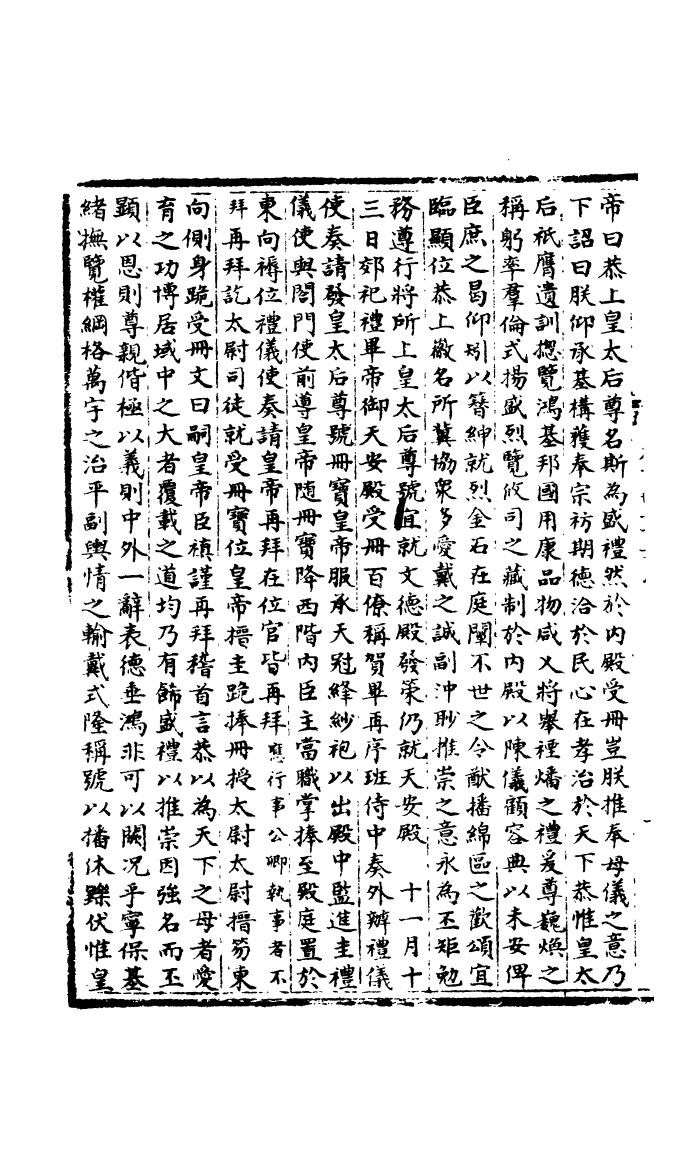 帝曰恭上皇太后尊名斯為盛禮然於内殿受冊豈朕推奉母儀之意乃
下詔曰朕仰承基構獲奉宗祊期德洽於民心在孝治於天下恭惟皇太
后祇膺遺訓揔覽鴻基邦國用康品物咸乂將舉禋燔之禮爰尊巍煥之
稱躬率羣倫式揚盛烈覽攸司之藏制於内殿以陳儀顧容典以未安俾
臣庶之曷仰矧以簪紳就烈金石在庭闡不世之令猷播綿區之歡頌宜
臨顯位恭上徽名所冀協衆多愛戴之誠副沖眇推崇之意永為丕矩勉
務遵行將所上皇太后尊號宜就文德殿發策仍就天安殿　十一月十
三日郊祀禮畢帝御天安殿受冊百僚稱賀畢再序班侍中奏外辦禮儀
使奏請發皇太后尊號冊寶皇帝服承天冠絳紗袍以出殿中監進圭禮
儀使與閤門使前導皇帝随冊寶降西階内臣主當職掌捧至殿庭置於
東向褥位禮儀使奏請皇帝再拜在位官皆再拜應行事公卿執事者不
拜再拜訖太尉司徒就受冊寶位皇帝搢圭跪捧冊授太尉太尉搢笏東
向側身跪受冊文曰嗣皇帝臣禎謹再拜稽首言恭以為天下之母者愛
育之功博居域中之大者覆載之道均乃有飾盛禮以推崇因強名而丕
顯以恩則尊親偕極以義則中外一辭表德垂鴻非可以闕况乎寧保基
緒撫覽權綱格萬宇之治平副輿情之輸戴式隆稱號以播休鑠伏惟皇